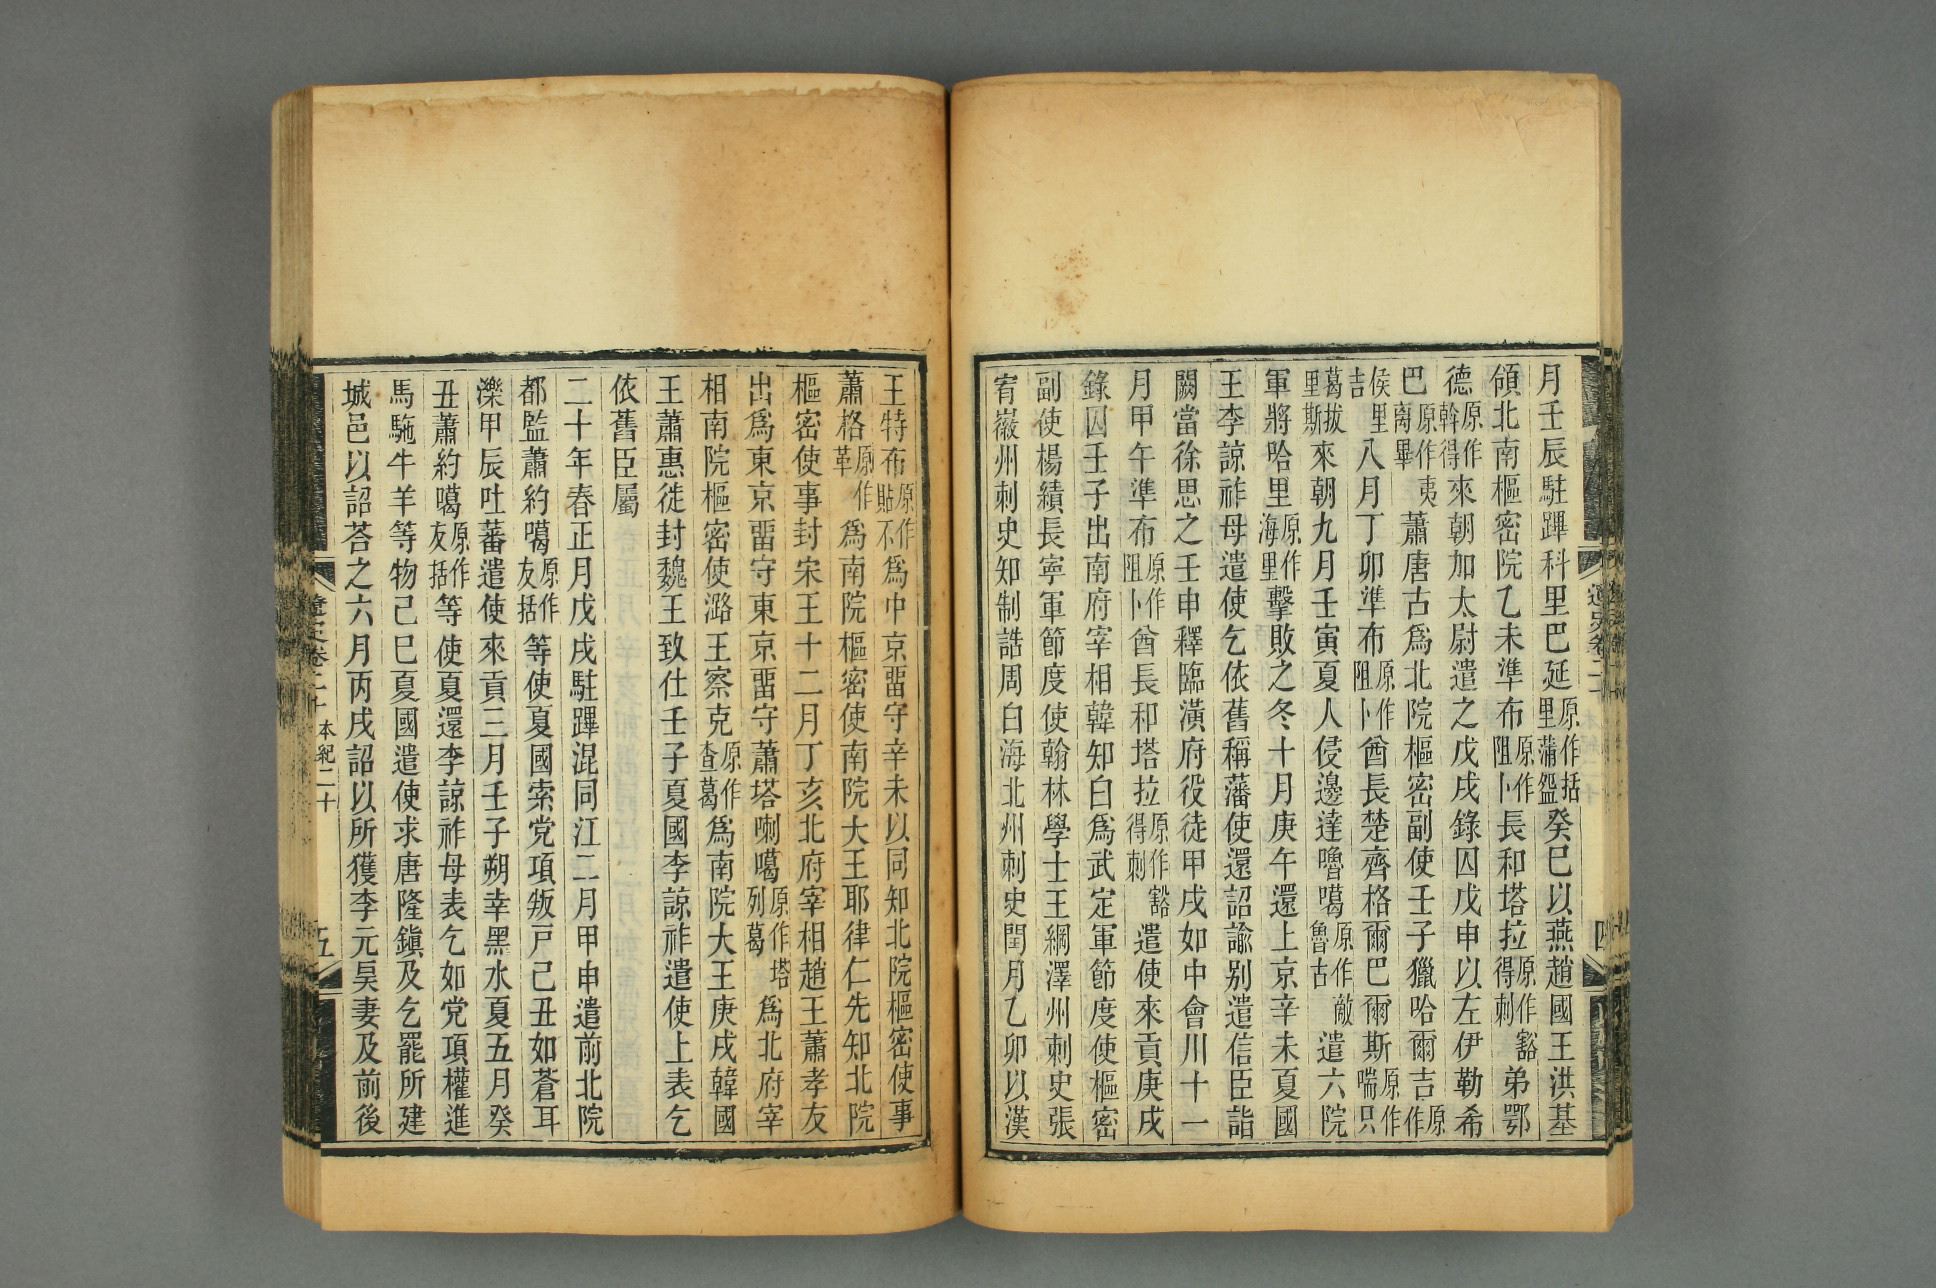 月壬辰駐蹕科里巴延原作括里蒲盌癸巳以燕趙國王洪基
領北南樞密院乙未準布原作阻卜長和塔拉原作豁得剌弟鄂
德原作斡得來朝加太尉遣之戊戌錄囚戊申以左伊勒希
巴原作夷离畢蕭唐古爲北院樞密副使壬子獵哈爾吉原作
侯里吉八月丁卯準布原作阻卜酋長楚齊格爾巴爾斯原作喘只
葛拔里斯來朝九月壬寅夏人侵邊達嚕噶原作敵魯古遣六院
軍將哈里原作海里擊敗之冬十月庚午還上京辛未夏國
王李諒祚母遣使乞依舊稱藩使還詔諭别遣信臣詣
闕當徐思之壬申釋臨潢府役徒甲戌如中會川十一
月甲午準布原作阻卜酋長和塔拉原作豁得剌遣使來貢庚戌
錄囚壬子出南府宰相韓知白爲武定軍節度使樞密
副使楊績長寧軍節度使翰林學士王綱澤州刺史張
宥徽州刺史知制誥周白海北州刺史閏月乙卯以漢
王特布原作貼不爲中京畱守辛未以同知北院樞密使事
蕭格原作革爲南院樞密使南院大王耶律仁先知北院
樞密使事封宋王十二月丁亥北府宰相趙王蕭孝友
出爲東京畱守東京畱守蕭塔喇噶原作塔列葛爲北府宰
相南院樞密使潞王察克原作查葛爲南院大王庚戌韓國
王蕭惠徙封魏王致仕壬子夏國李諒祚遣使上表乞
依舊臣屬
二十年春正月戊戌駐蹕混同江二月甲申遣前北院
都監蕭約噶原作友括等使夏國索党項叛戸己丑如蒼耳
濼甲辰吐蕃遣使來貢三月壬子朔幸黑水夏五月癸
丑蕭約噶原作友括等使夏還李諒祚母表乞如党項權進
馬駞牛羊等物己巳夏國遣使求唐隆鎭及乞罷所建
城邑以詔荅之六月丙戌詔以所獲李元昊妻及前後
遼史卷二十 本紀二十 五